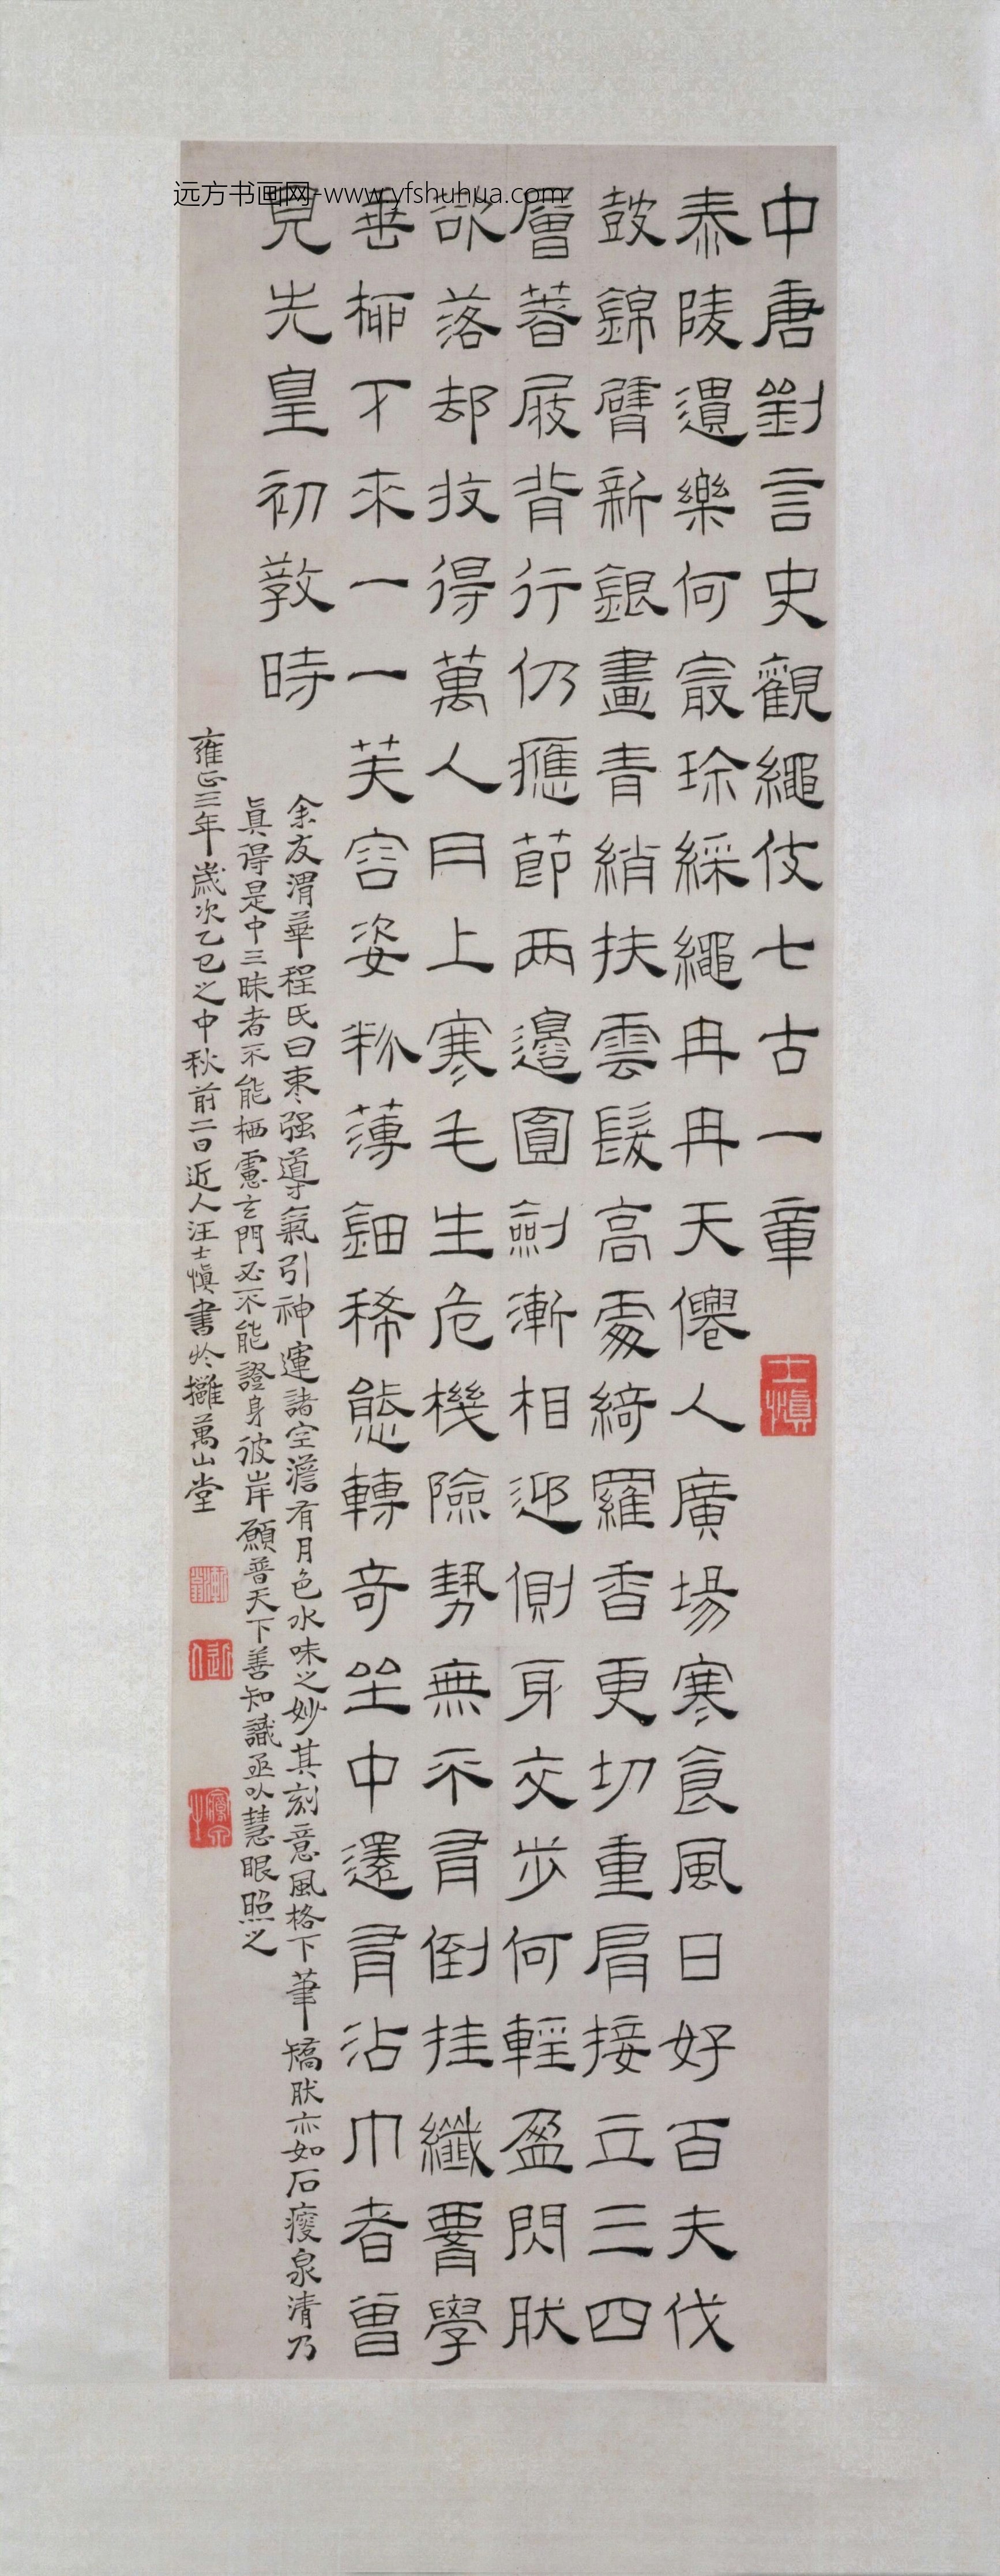 远方书画网-www.yfshuhua.com
中唐劉言史觀繩伎七古一章
士慎
泰陵遺樂何最珍綵繩冉冉天僊人廣場寒食風日好百夫伐
鼓錦臂新銀畫青綃抹雲髮高處綺羅香更切重肩接立三四
層著屐背行仍應節兩邊圓劍漸相迎側身交步何輕盈閃肰
欲落却收得萬人冂上寒毛生危機險勢無不有倒挂纖腰學
垂柳下來一一芙容姿粉薄鈿稀態轉奇坐中還有沾巾者曾
見先皇初教時
余友渭華程氏曰棗强導氣引神運諸空澹有月色水味之妙其刻意風格下筆矯肰亦如石瘦泉清乃
真得是中三昧者不能栖慮玄門必不能證身彼岸願普天下善知識亟以慧眼照之
雍正三年歲次乙巳之中秋前二日近人汪士慎書於攡萬山堂
近人